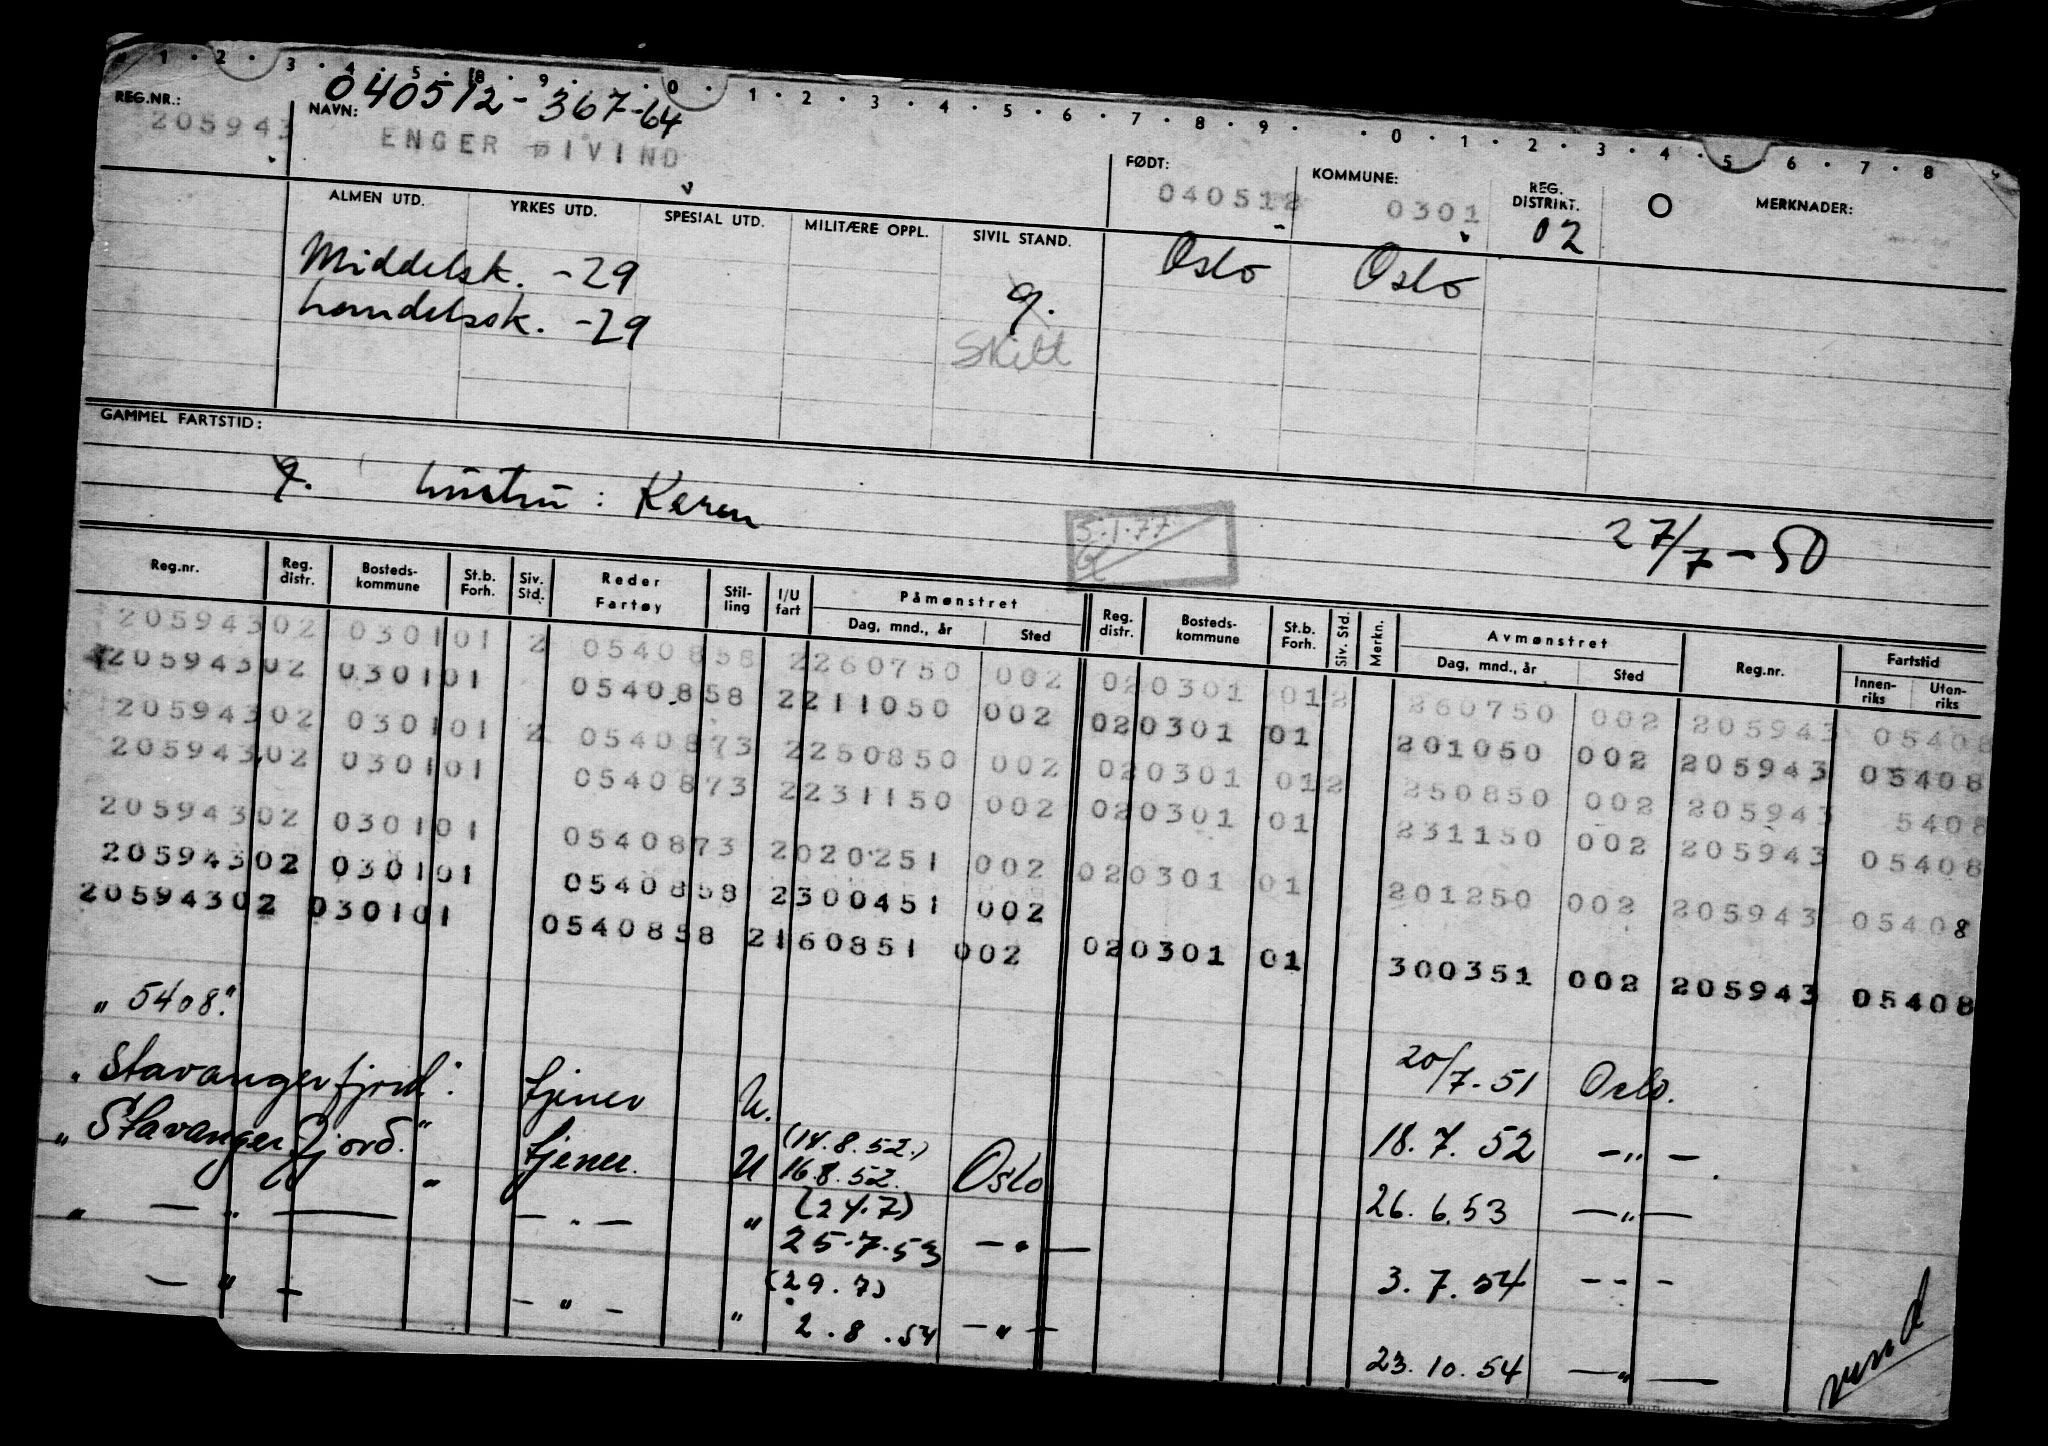 1 · 2 · 3 · 4 · 5 · 8 · 9 · · 0 · 1 · 2 · 3 · 4 · 5 · 6 · 7 · 8 · 9 · · 0 · 1 · 2 · 3 · 4 · 5 · 6 · 7 · 8 · 9
040512-367-64
REG.NR.: 205943
NAVN: ENGER ØIVIND
FØDT: 040512
KOMMUNE: 0301
REG. DISTRIKT. 02
O
MERKNADER:
ALMEN UTD. YRKES UTD. SPESIAL UTD. MILITÆRE OPPL. SIVIL STAND.
Middelsk. -29 g. Oslo Oslo
handelssk. -29 Skilt
GAMMEL FARTSTID:
g. hustru: Karen
5.1.77
27/7-50
Reg.nr. Reg. distr. Bosteds-kommune St.b. Forh. Siv. Std. Reder Fartøy Stil-ling I/U fart Påmønstret Dag, mnd., år Sted Reg. distr. Bosteds-kommune St.b. Forh. Siv. Std. Merkn. Avmønstret Dag, mnd., år Sted Reg.nr. Fartstid Innen-riks Uten-riks
20594302 030101 2 0540858 2260750 002 020301 012 260750 002 205943 05408
20594302 030101 0540858 2211050 002 020301 01 201050 002 205943 05408
20594302 030101 2 0540873 2250850 002 020301 012 250850 002 205943 5408
20594302 030101 0540873 2231150 002 020301 01 231150 002 205943 05408
20594302 030101 0540873 2020251 002 020301 01 201250 002 205943 05408
20594302 030101 0540858 2300451 002 020301 01 300351 002 205943 05408
20594302 030101 0540858 2160851 002
"5408" 20/7-51 Oslo.
"Stavangerfjord" tjener U. 18.7.52 —"—
"Stavangerfjord" tjener. U (14.8.52.) 16.8.52. Oslo 26.6.53 —"—
" —"— —"— " (24.7) 25.7.53 —"— 3.7.54 —"—
—"— —"— " (29.7) 2.8.54 —"— 23.10.54 —"—
vend